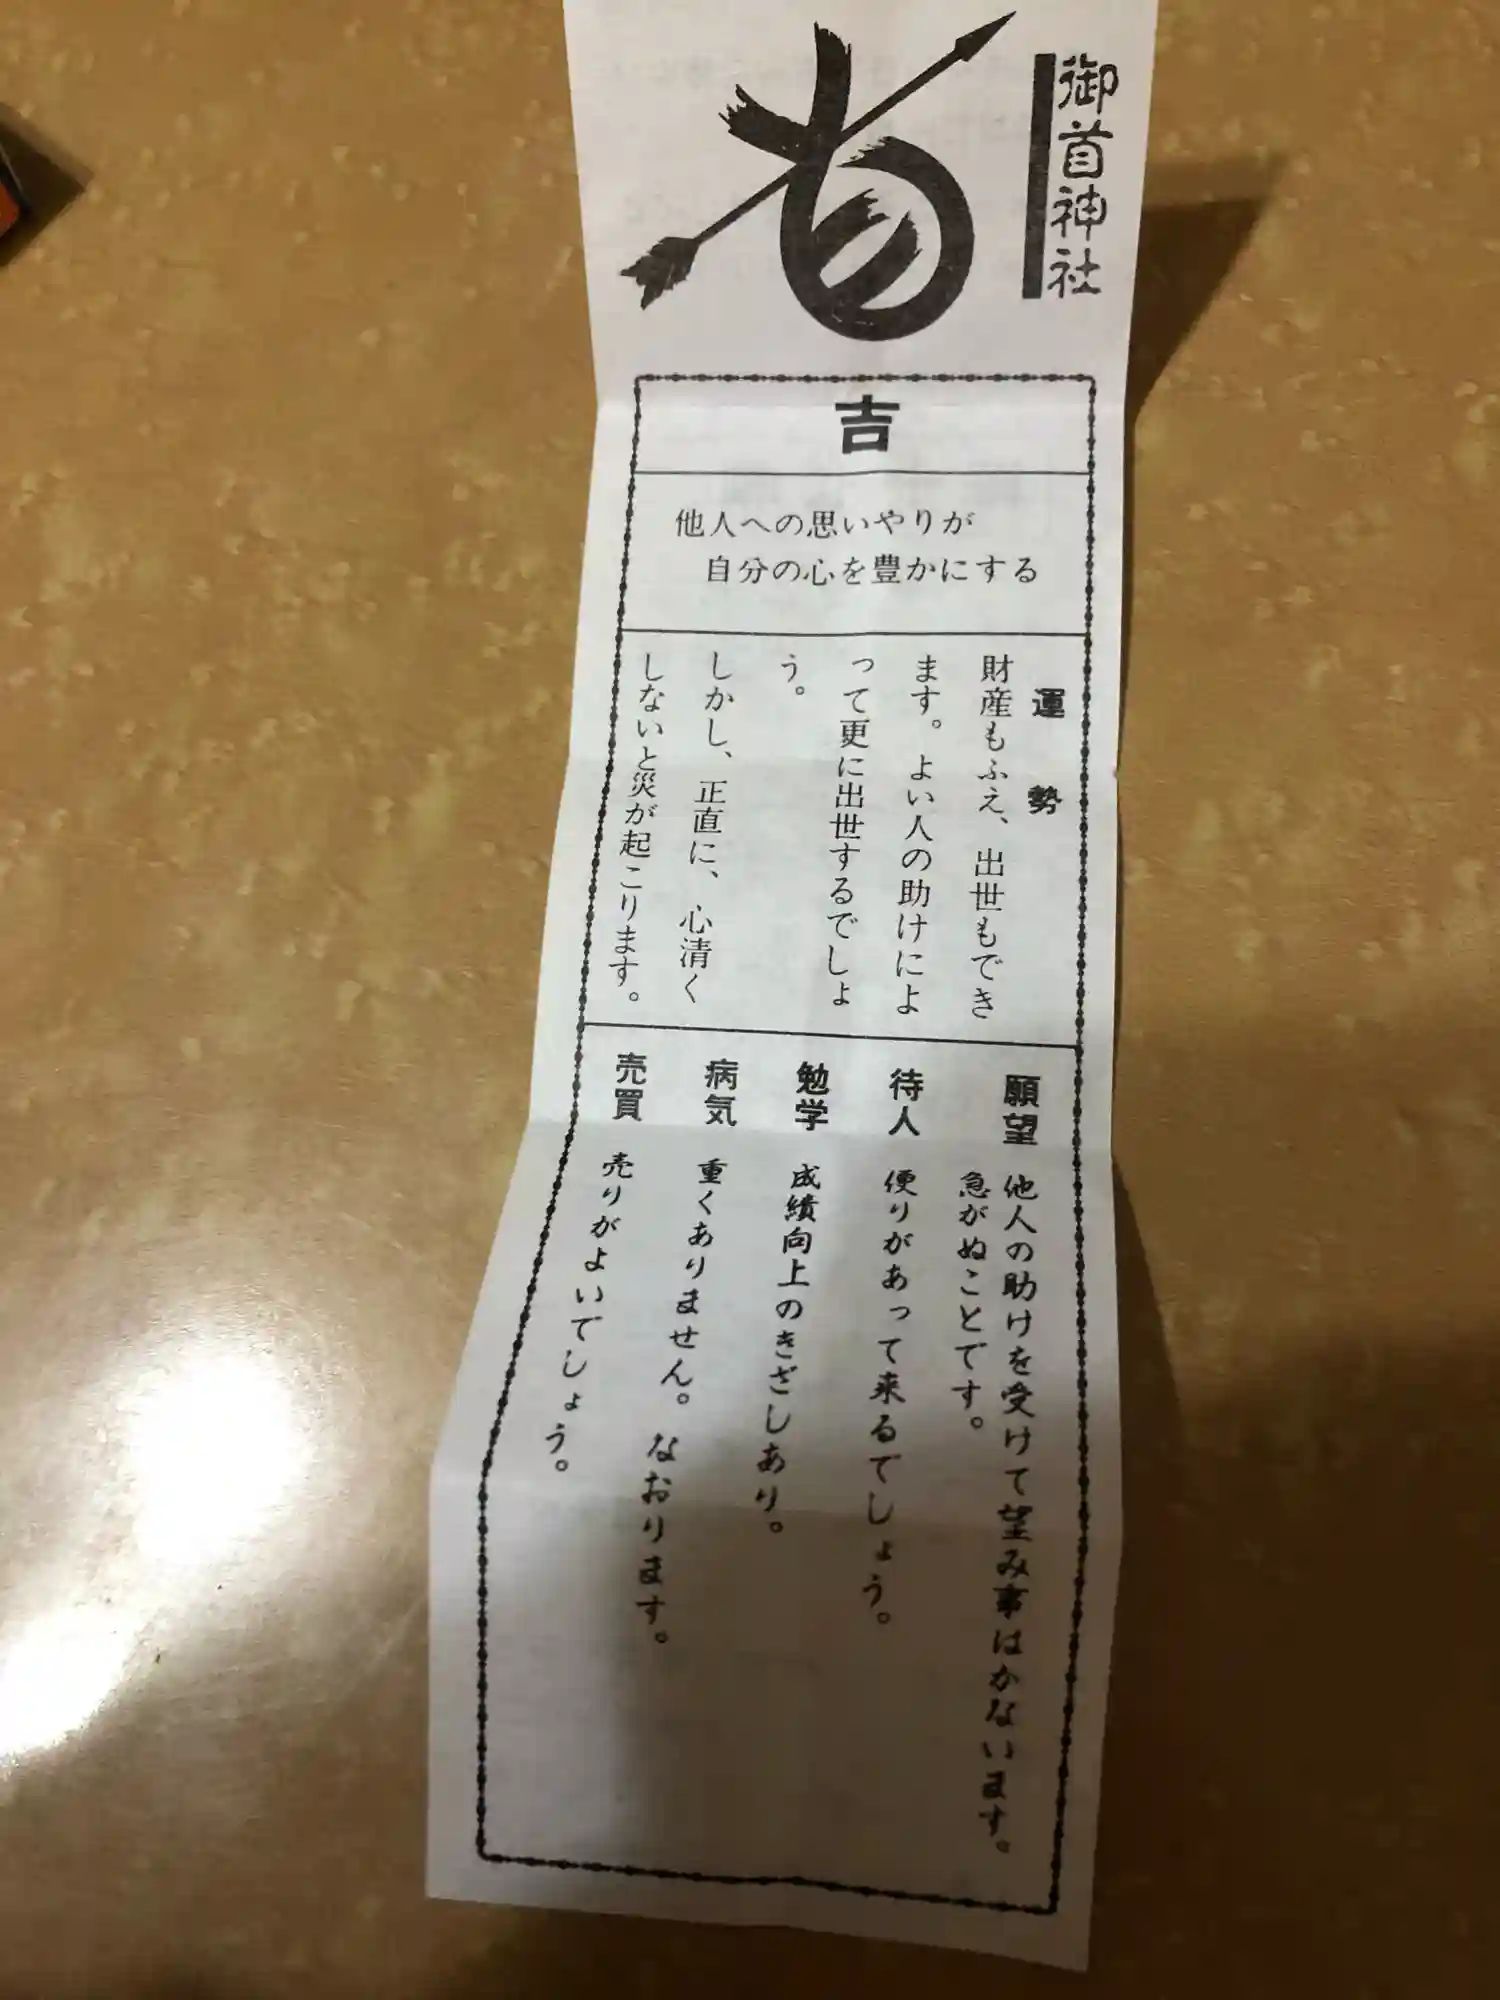 御首神社
吉
他人への思いやりが
自分の心を豊かにする
運勢
財産もふえ、出世もでき
ます。よい人の助けによ
って更に出世するでしょ
う。
しかし、正直に、心清く
しないと災が起こります。
願望 他人の助けを受けて望み事はかないます。
急がぬことです。
待人 便りがあって来るでしょう。
勉学 成績向上のきざしあり。
病気 重くありません。なおります。
売買 売りがよいでしょう。